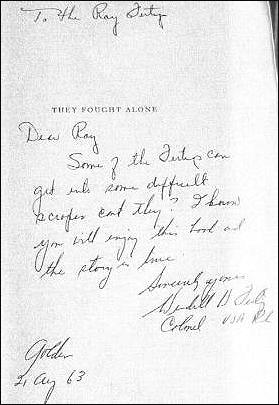 To the Ray Fertig
THEY FOUGHT ALONE
Dear Ray
Some of the Fertigs can
get into some difficult
scrapes can't they? I know
you will enjoy this book and
the story is true.
Sincerely yours
Wendell W Fertig
Colonel USA Ret
Golden
21 Aug 63